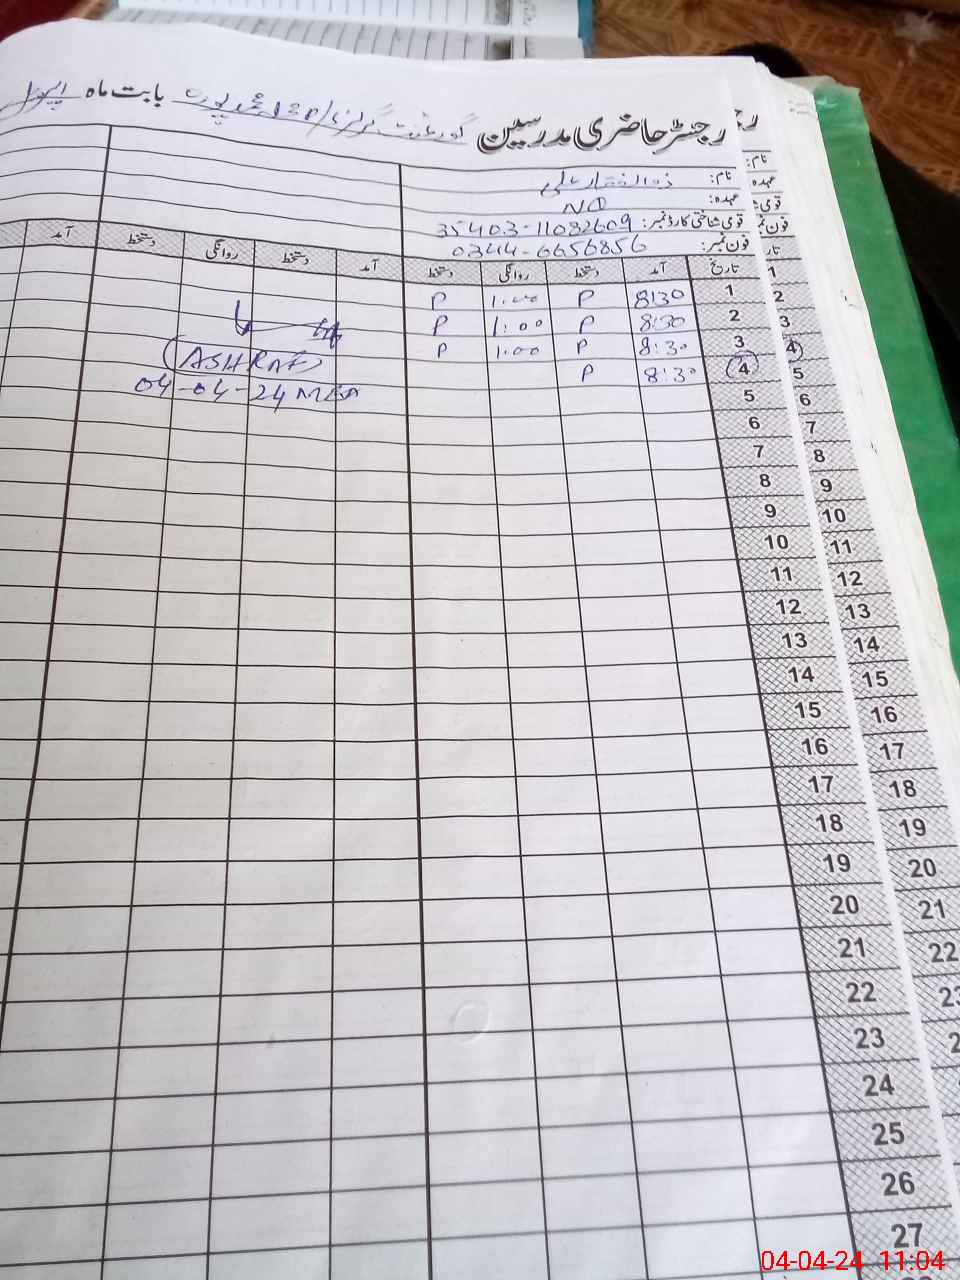 رجسٹر حاضری مدرسین گورنمنٹ گرلز پرائمری محمود پورہ بابت ماہ اپریل
نام: ذوالفقار علی
عہدہ: NQ
قومی شناختی کارڈ نمبر: 35403-11082609
فون نمبر: 0344-6656856
تاریخ آمد دستخط روانگی دستخط آمد دستخط روانگی دستخط آمد
1 8:30 P 1:00 P
2 8:30 P 1:00 P
3 8:30 P 1:00 P
4 8:30 P
(ASHRAF)
04-04-24 MEA
5
6
7
8
9
10
11
12
13
14
15
16
17
18
19
20
21
22
23
24
25
26
27
نام:
عہدہ
فون نمبر
1
2
3
4
5
6
7
8
9
10
11
12
13
14
15
16
17
18
19
20
21
22
04-04-24 11:04